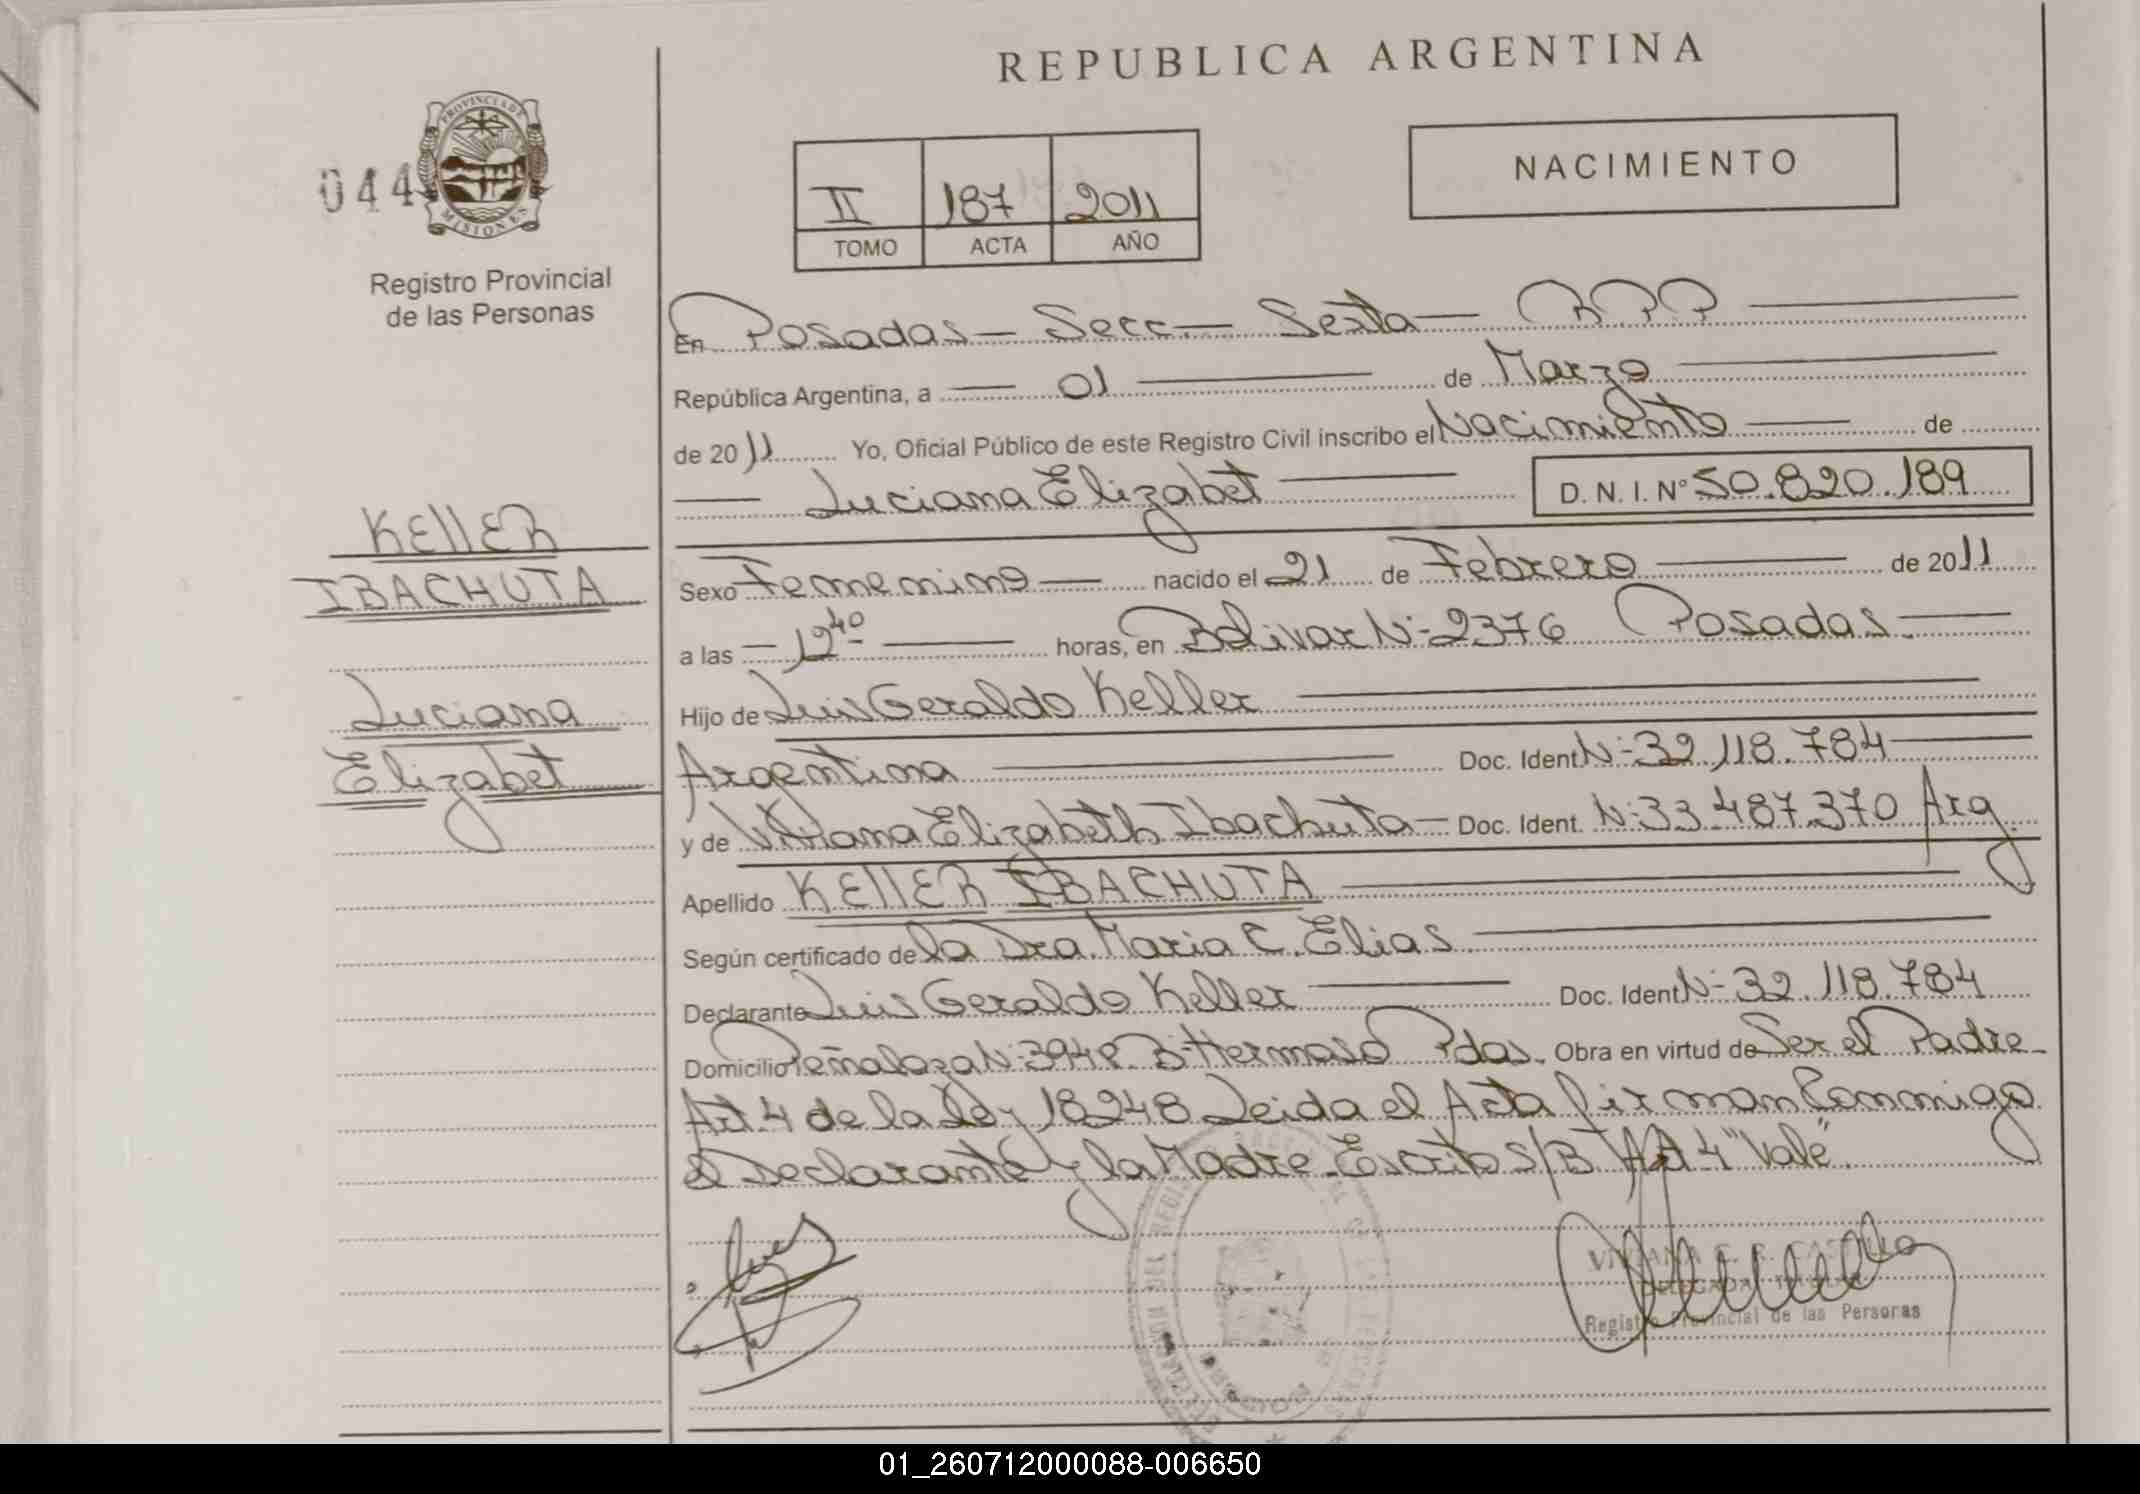 REPUBLICA ARGENTINA
PROVINCIA DE
MISIONES
044
Registro Provincial
de las Personas
NACIMIENTO
II 187 2011
TOMO ACTA AÑO
En Posadas - Secc - Sexta - RPP
República Argentina, a 01 de Marzo
de 2011 Yo, Oficial Público de este Registro Civil inscribo el Nacimiento de
Luciana Elizabet D. N. I. N° 50.820.189
KELLER
IBACHUTA
Luciana
Elizabet
Sexo Femenino nacido el 21 de Febrero de 2011
a las 12 40 horas, en Bolivar N° 2376 Posadas.
Hijo de Luis Geraldo Keller
Argentina Doc. Ident N° 32.118.784
y de Viviana Elizabeth Ibachuta - Doc. Ident. N° 33.487.370 Arg.
Apellido KELLER IBACHUTA
Según certificado de la Dra. Maria C. Elias
Declarante Luis Geraldo Keller Doc. Ident N° 32.118.784
Domicilio Peñaloza N° B° Hermoso Pdas. Obra en virtud de Ser el Padre
Art. 4 de la Ley 18248 Leida el Acta firman Conmigo
el Declarante y la Madre. Escrito S/B Art 4 "Vale".
VIVIANA
DELEGADA TITULAR
Registro Provincial de las Personas
01_260712000088-006650